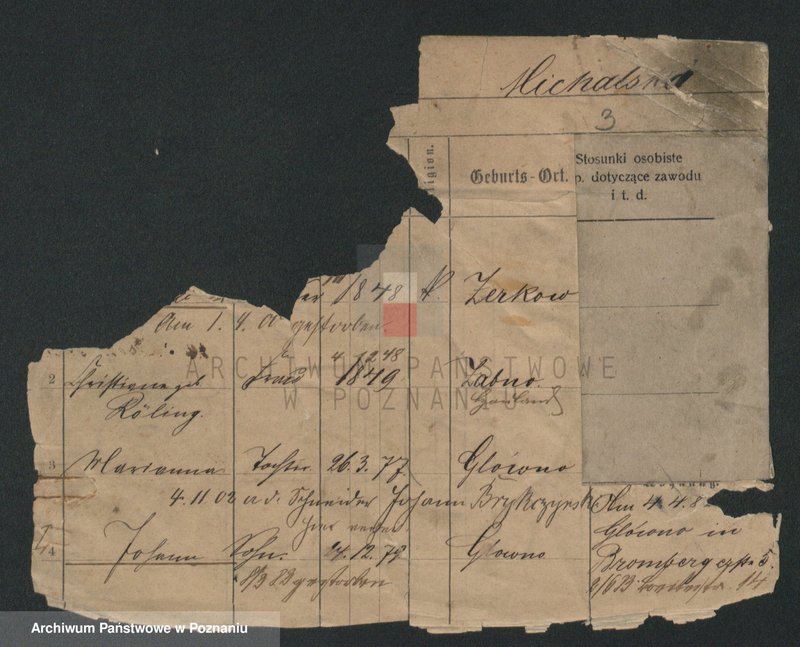 Michalski
3
Religion.
Geburts-Ort.
Stosunki osobiste
p. dotyczące zawodu
i t. d.
1848 k. Zerkow
Am 1. 4. 00 gestorben
4. 12. 48
2 Christiane geb. Frau 1849 Zabno.
Röling. Hauland
ARCHIWUM PAŃSTWOWE
W POZNANIU
3 Marianna Tochter 26. 3. 77 Glówno
4. 11. 02 a. d. Schneider Johann
Am 4. 4. 8
hier verh.
Glówno in
4 Johann Sohn. 4. 12. 79 Glowno
Bromberg 5.
gestorben
14
Archiwum Państwowe w Poznaniu